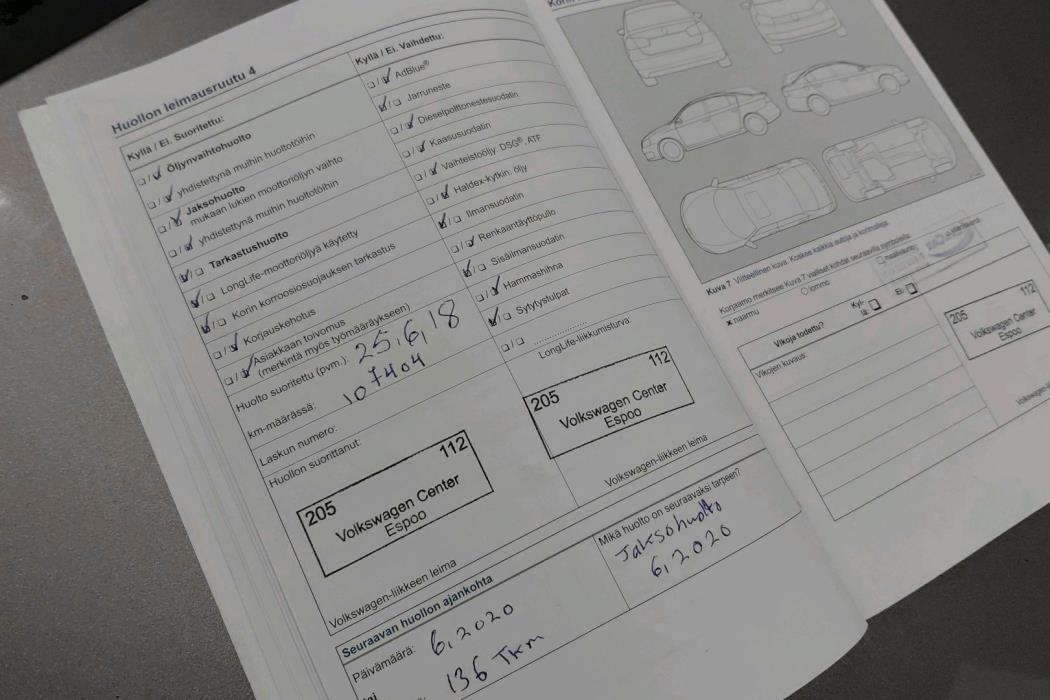 Huollon leimausruutu 4
Kyllä / Ei. Suoritettu:
Öljynvaihtohuolto
yhdistettynä muihin huoltotöihin
Jaksohuolto
mukaan lukien moottoriöljyn vaihto
yhdistettynä muihin huoltotöihin
Tarkastushuolto
LongLife-moottoriöljyä käytetty
Korin korroosiosuojauksen tarkastus
Korjauskehotus
Asiakkaan toivomus
(merkintä myös työmääräykseen)
Huolto suoritettu (pvm.): 25.6.18
km-määrässä: 107404
Laskun numero:
Huollon suorittanut:
205 112
Volkswagen Center
Espoo
Volkswagen-liikkeen leima
Kyllä / Ei. Vaihdettu:
AdBlue®
Jarruneste
Dieselpolttonestesuodatin
Kaasusuodatin
Vaihteistoöljy: DSG®, ATF
Haldex-kytkin: öljy
Ilmansuodatin
Renkaantäyttöpullo
Sisäilmansuodatin
Hammashihna
Sytytystulpat
LongLife-liikkumisturva:
205 112
Volkswagen Center
Espoo
Volkswagen-liikkeen leima
Seuraavan huollon ajankohta
Päivämäärä: 6.2020
136 Tkm
Mikä huolto on seuraavaksi tarpeen?
Jaksohuolto
6.2020
Kuva 7 Viitteellinen kuva. Koskee kaikkia autoja ja korimalleja.
Korjaamo merkitsee Kuva 7 vialliset kohdat seuraavilla symboleilla:
x naarmu
○ lommo
Vikoja todettu?
Kyl-
lä:
Ei:
Vikojen kuvaus:
205 112
Volkswagen Center
Espoo